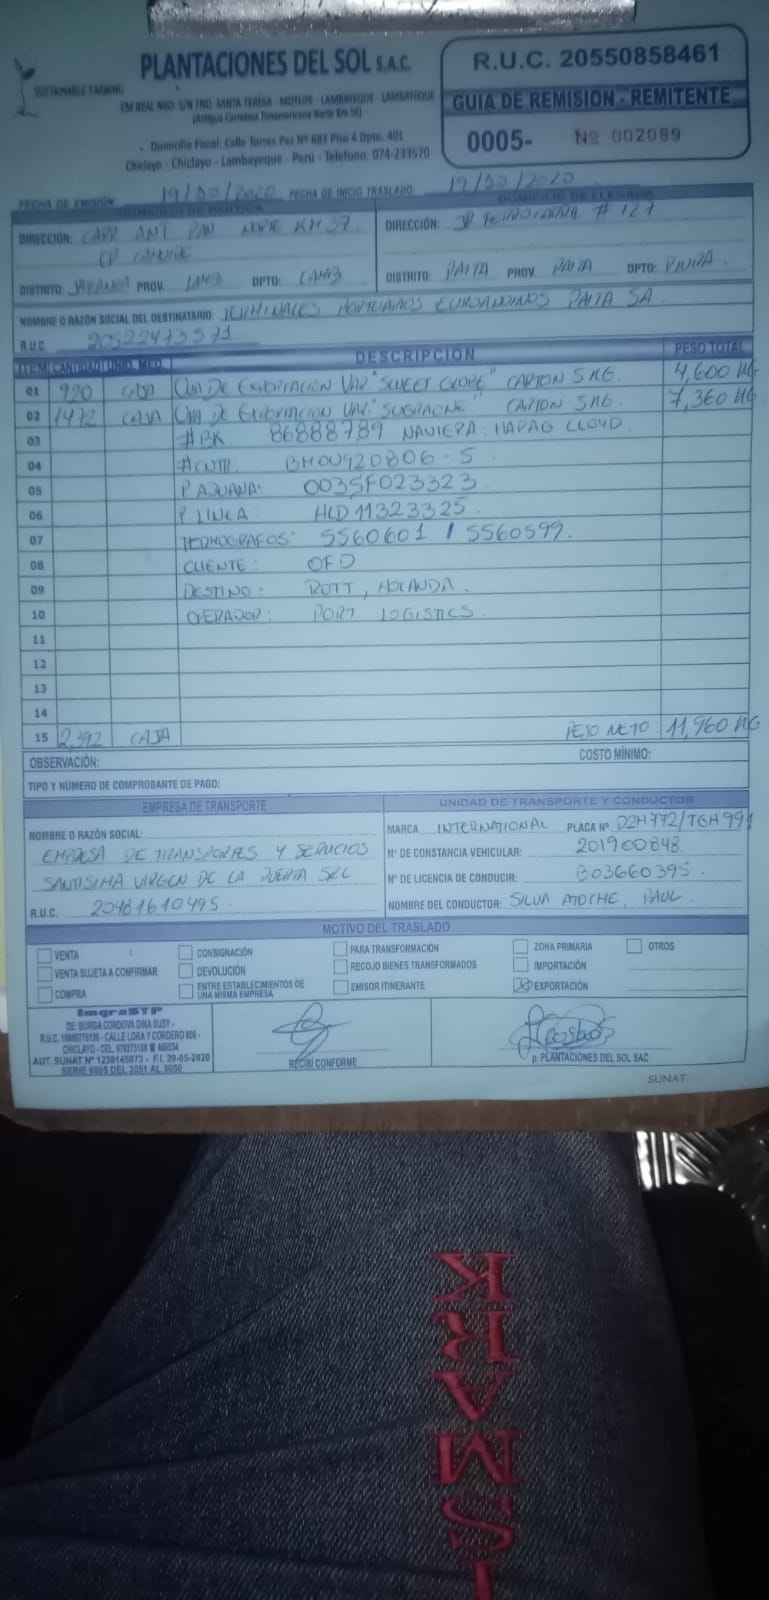 SUSTAINABLE FARMING
PLANTACIONES DEL SOL S.A.C.
CM REAL NRO. S/N FND. SANTA TERESA - MOTUPE - LAMBAYEQUE - LAMBAYEQUE
(Antigua Carretera Panamericana Norte Km 56)
Domicilio Fiscal: Calle Torres Paz Nº 683 Piso 4 Dpto. 401
Chiclayo - Chiclayo - Lambayeque - Perú - Telefono: 074-233570
R.U.C. 20550858461
GUIA DE REMISION - REMITENTE
0005- Nº 002089
FECHA DE EMISIÓN 19/ /2020 FECHA DE INICIO TRASLADO 19/ /2020
DOMICILIO DE PARTIDA DOMICILIO DE LLEGADA
DIRECCIÓN: CARR ANT PAN NORTE KM 37 DIRECCIÓN: # 127
CP
DISTRITO: JAYANCA PROV. LAMB DPTO: LAMB DISTRITO: PAITA PROV. PAITA DPTO: PIURA
NOMBRE O RAZÓN SOCIAL DEL DESTINATARIO: TERMINALES PORTUARIOS EUROANDINOS PAITA SA
R.U.C. 20522473571
ITEM CANTIDAD UNID. MED. DESCRIPCION PESO TOTAL
01 920 CAJA UVA DE EXPORTACION VAR "SWEET GLOBE" CARTON 5 KG. 4,600 KG
02 1472 CAJA UVA DE EXPORTACION VAR. "SUGRAONE" CARTON 5KG. 7,360 KG
03 #BK 86888789 NAVIERA: HAPAG LLOYD
04 #CNTR. BMOU920806-5
05 P ADUANA: 0035F023323
06 P. LINEA: HLD 11323325
07 TERMOGRAFOS: 5560601 / 5560599.
08 CLIENTE: OFD
09 DESTINO: ROTT, HOLANDA.
10 OPERADOR: PORT LOGISTICS
11
12
13
14
15 2,392 CAJA PESO NETO: 11,960 KG
OBSERVACIÓN: COSTO MÍNIMO:
TIPO Y NÚMERO DE COMPROBANTE DE PAGO:
EMPRESA DE TRANSPORTE UNIDAD DE TRANSPORTE Y CONDUCTOR
NOMBRE O RAZÓN SOCIAL: MARCA INTERNATIONAL PLACA Nº D2H772/TGH991
EMPRESA DE TRANSPORTES Y SERVICIOS Nº DE CONSTANCIA VEHICULAR: 201900848.
SANTISIMA VIRGEN DE LA PUERTA SRL Nº DE LICENCIA DE CONDUCIR: B03660395.
R.U.C. 20481610495 NOMBRE DEL CONDUCTOR: SILVA ATOCHE, PAUL
MOTIVO DEL TRASLADO
VENTA CONSIGNACIÓN PARA TRANSFORMACIÓN ZONA PRIMARIA OTROS
VENTA SUJETA A CONFIRMAR DEVOLUCIÓN RECOJO BIENES TRANSFORMADOS IMPORTACIÓN
COMPRA ENTRE ESTABLECIMIENTOS DE UNA MISMA EMPRESA EMISOR ITINERANTE EXPORTACIÓN
ImgraSYP
DE: BURGA CORDOVA DINA SUSY -
- CALLE LORA Y CORDERO 806 -
AUT. SUNAT Nº 1239145073 - F.I. 29-05-2020
SERIE 0005 DEL 2051 AL 3050
RECIBÍ CONFORME
p. PLANTACIONES DEL SOL SAC
SUNAT